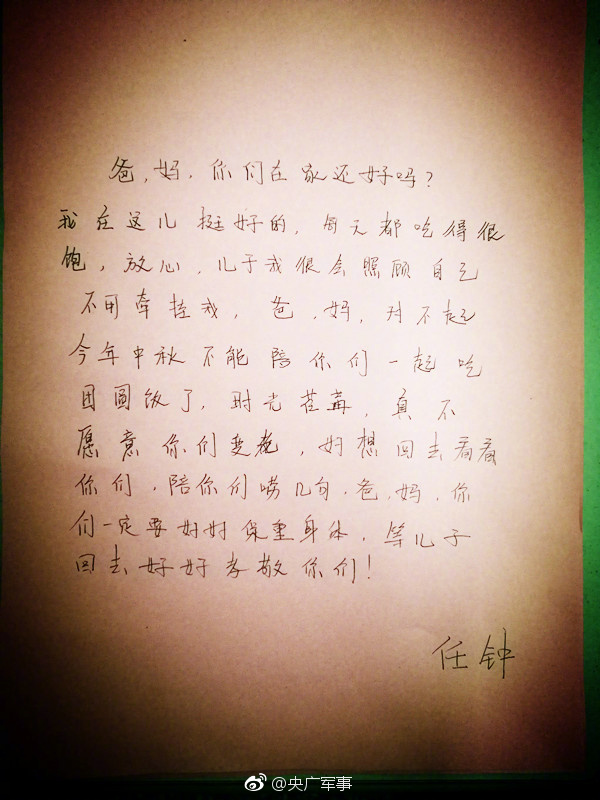 爸，妈，你们在家还好吗？
我在这儿挺好的，每天都吃得很
饱，放心，儿子我很会照顾自己
不用牵挂我，爸，妈，对不起
今年中秋不能陪你们一起吃
团圆饭了，时光荏苒，真不
愿意你们变老，好想回去看看
你们，陪你们唠几句，爸，妈，你
们一定要好好保重身体，等儿子
回去好好孝敬你们！
任钟
@央广军事